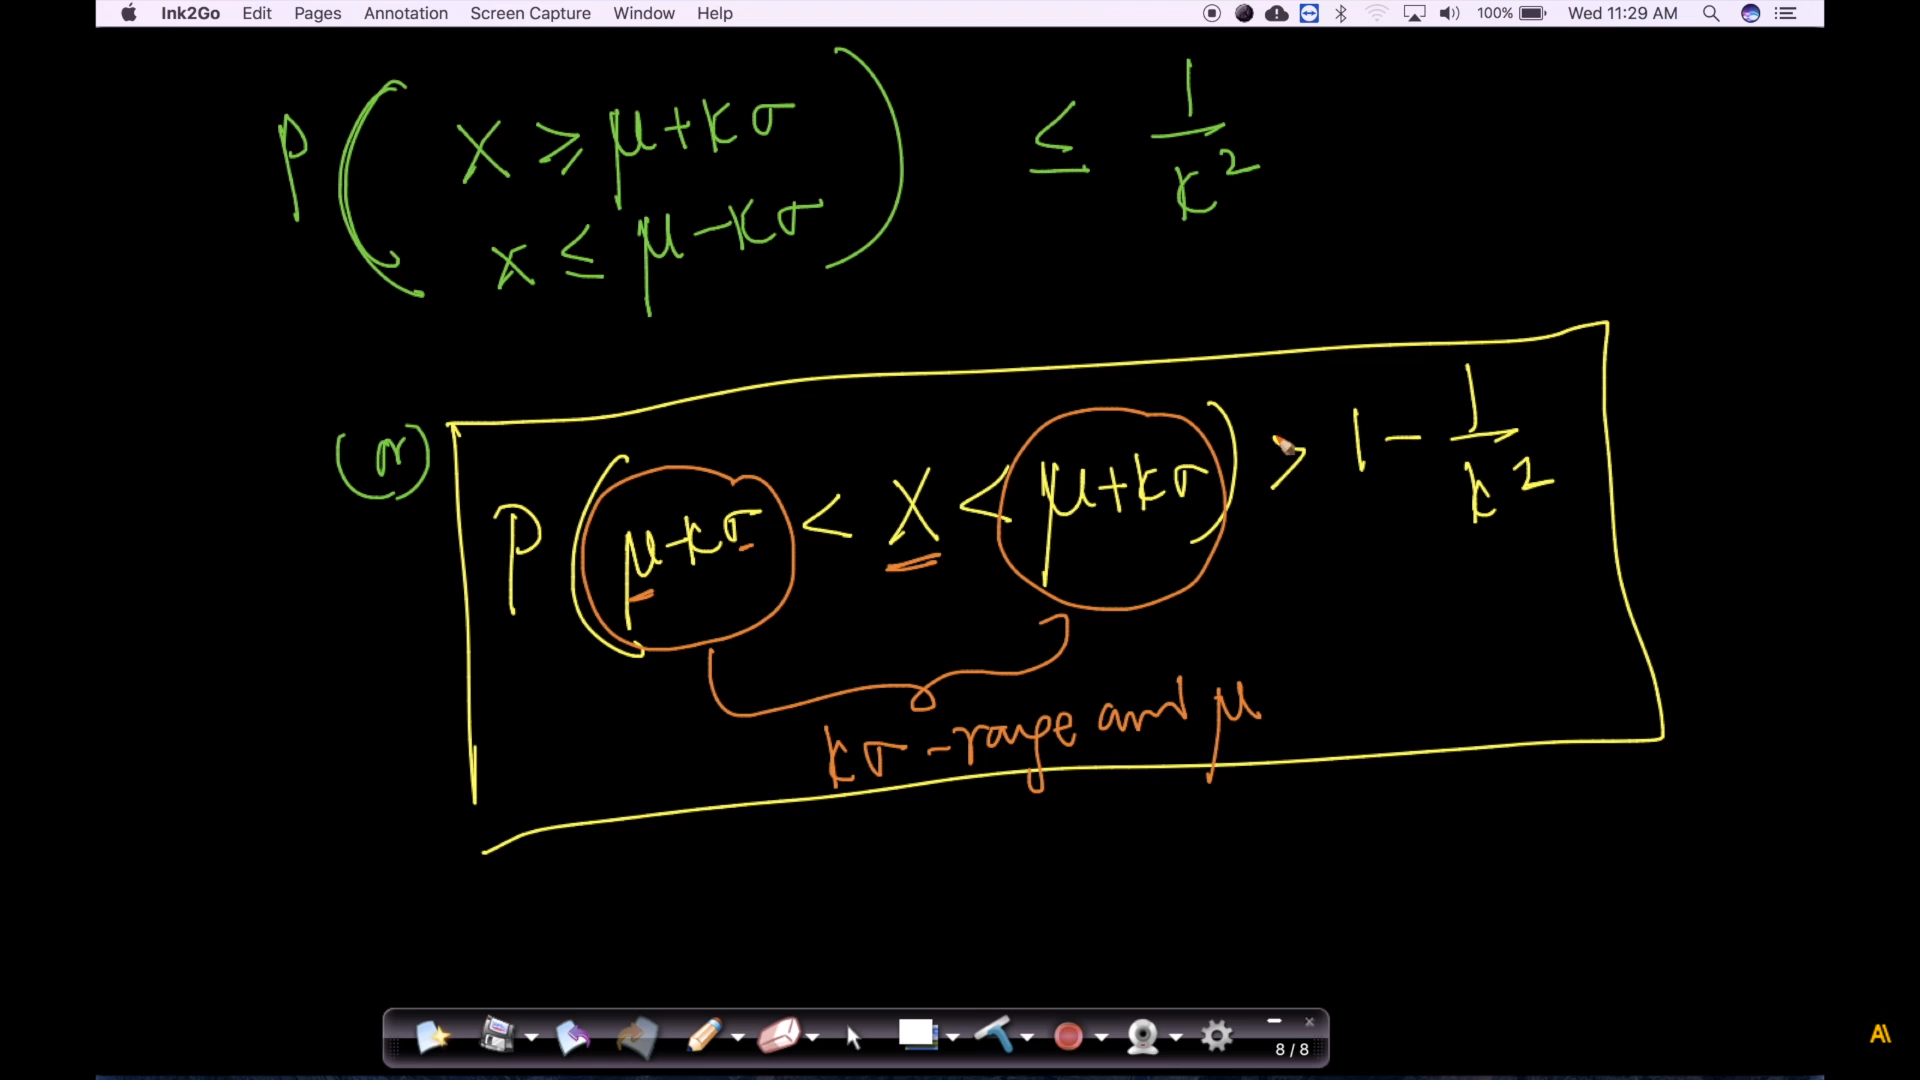 Ink2Go Edit Pages Annotation Screen Capture Window Help 100% Wed 11:29 AM
P ( X ≥ μ+kσ ) ≤ 1/k²
x ≤ μ-kσ
(or)
P ( μ-kσ < X < μ+kσ ) > 1 - 1/k²
kσ-range and μ
8/8